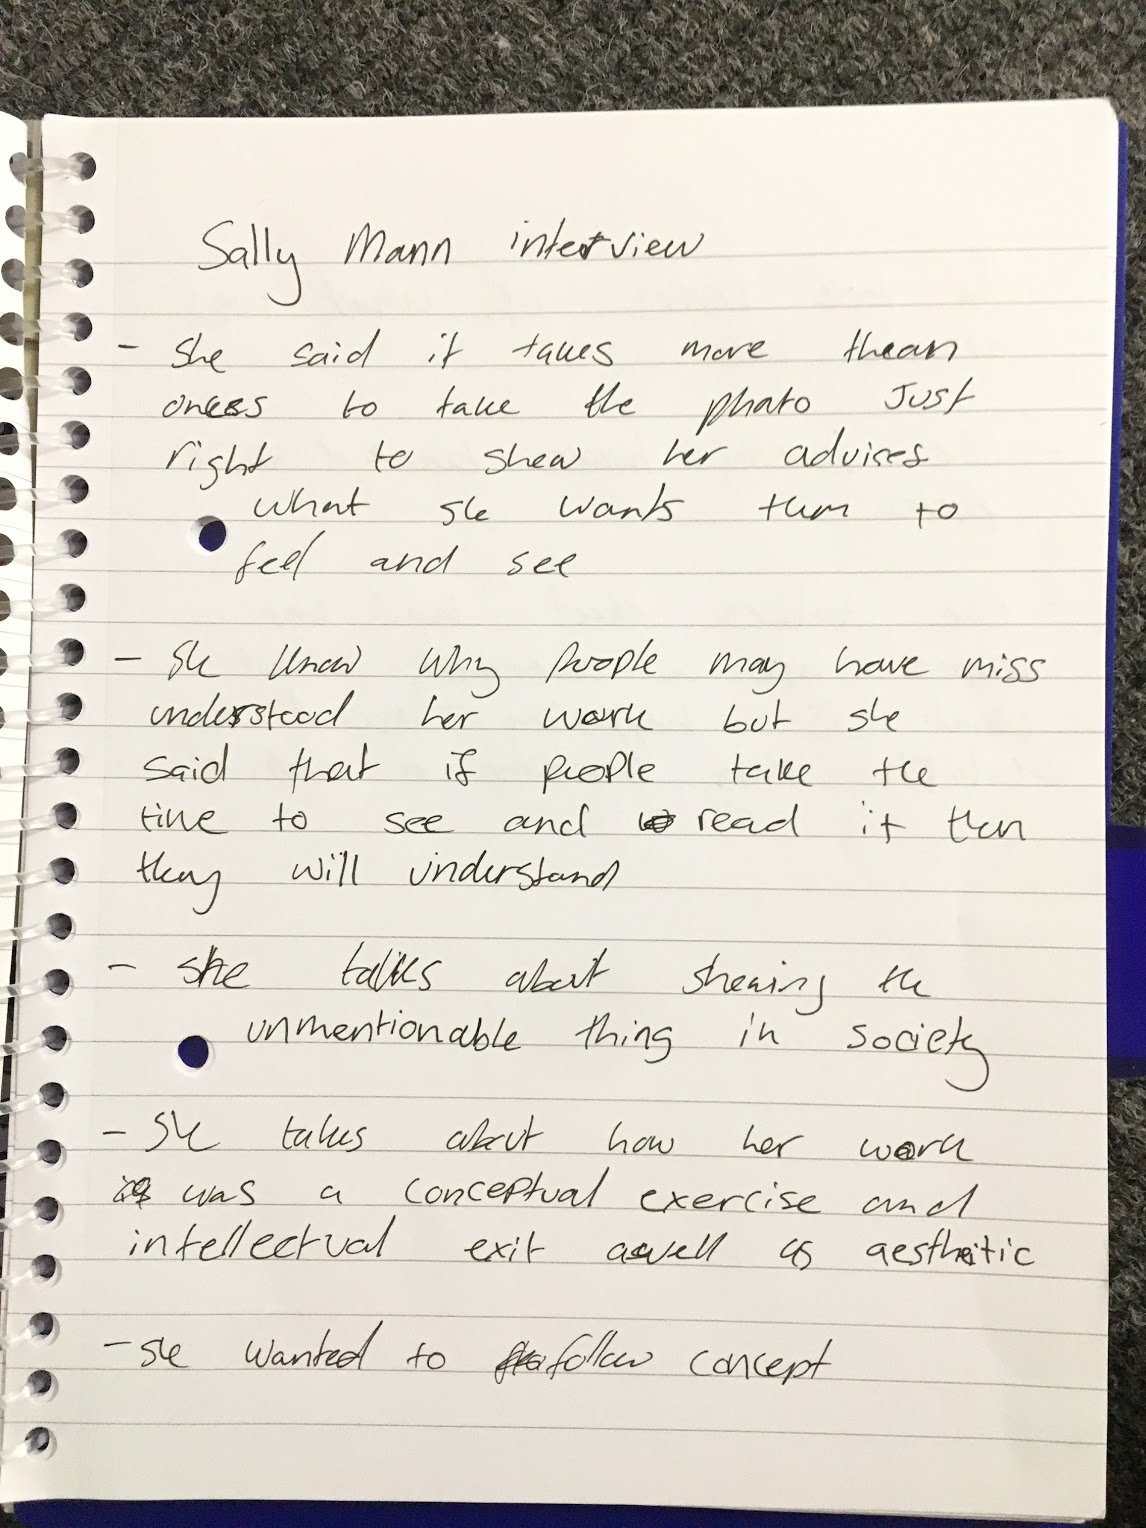 Sally Mann interview
- She said it takes more thean
oncess to take the photo Just
right to shew her advises
what she wants them to
feel and see
- She know why people may have miss
understood her work but she
said that if people take the
time to see and read it then
they will understand
- she talks about shewing the
unmentionable thing in society
- She talks about how her work
was a conceptual exercise and
intellectual exit aswell as aesthitic
- she wanted to follow concept